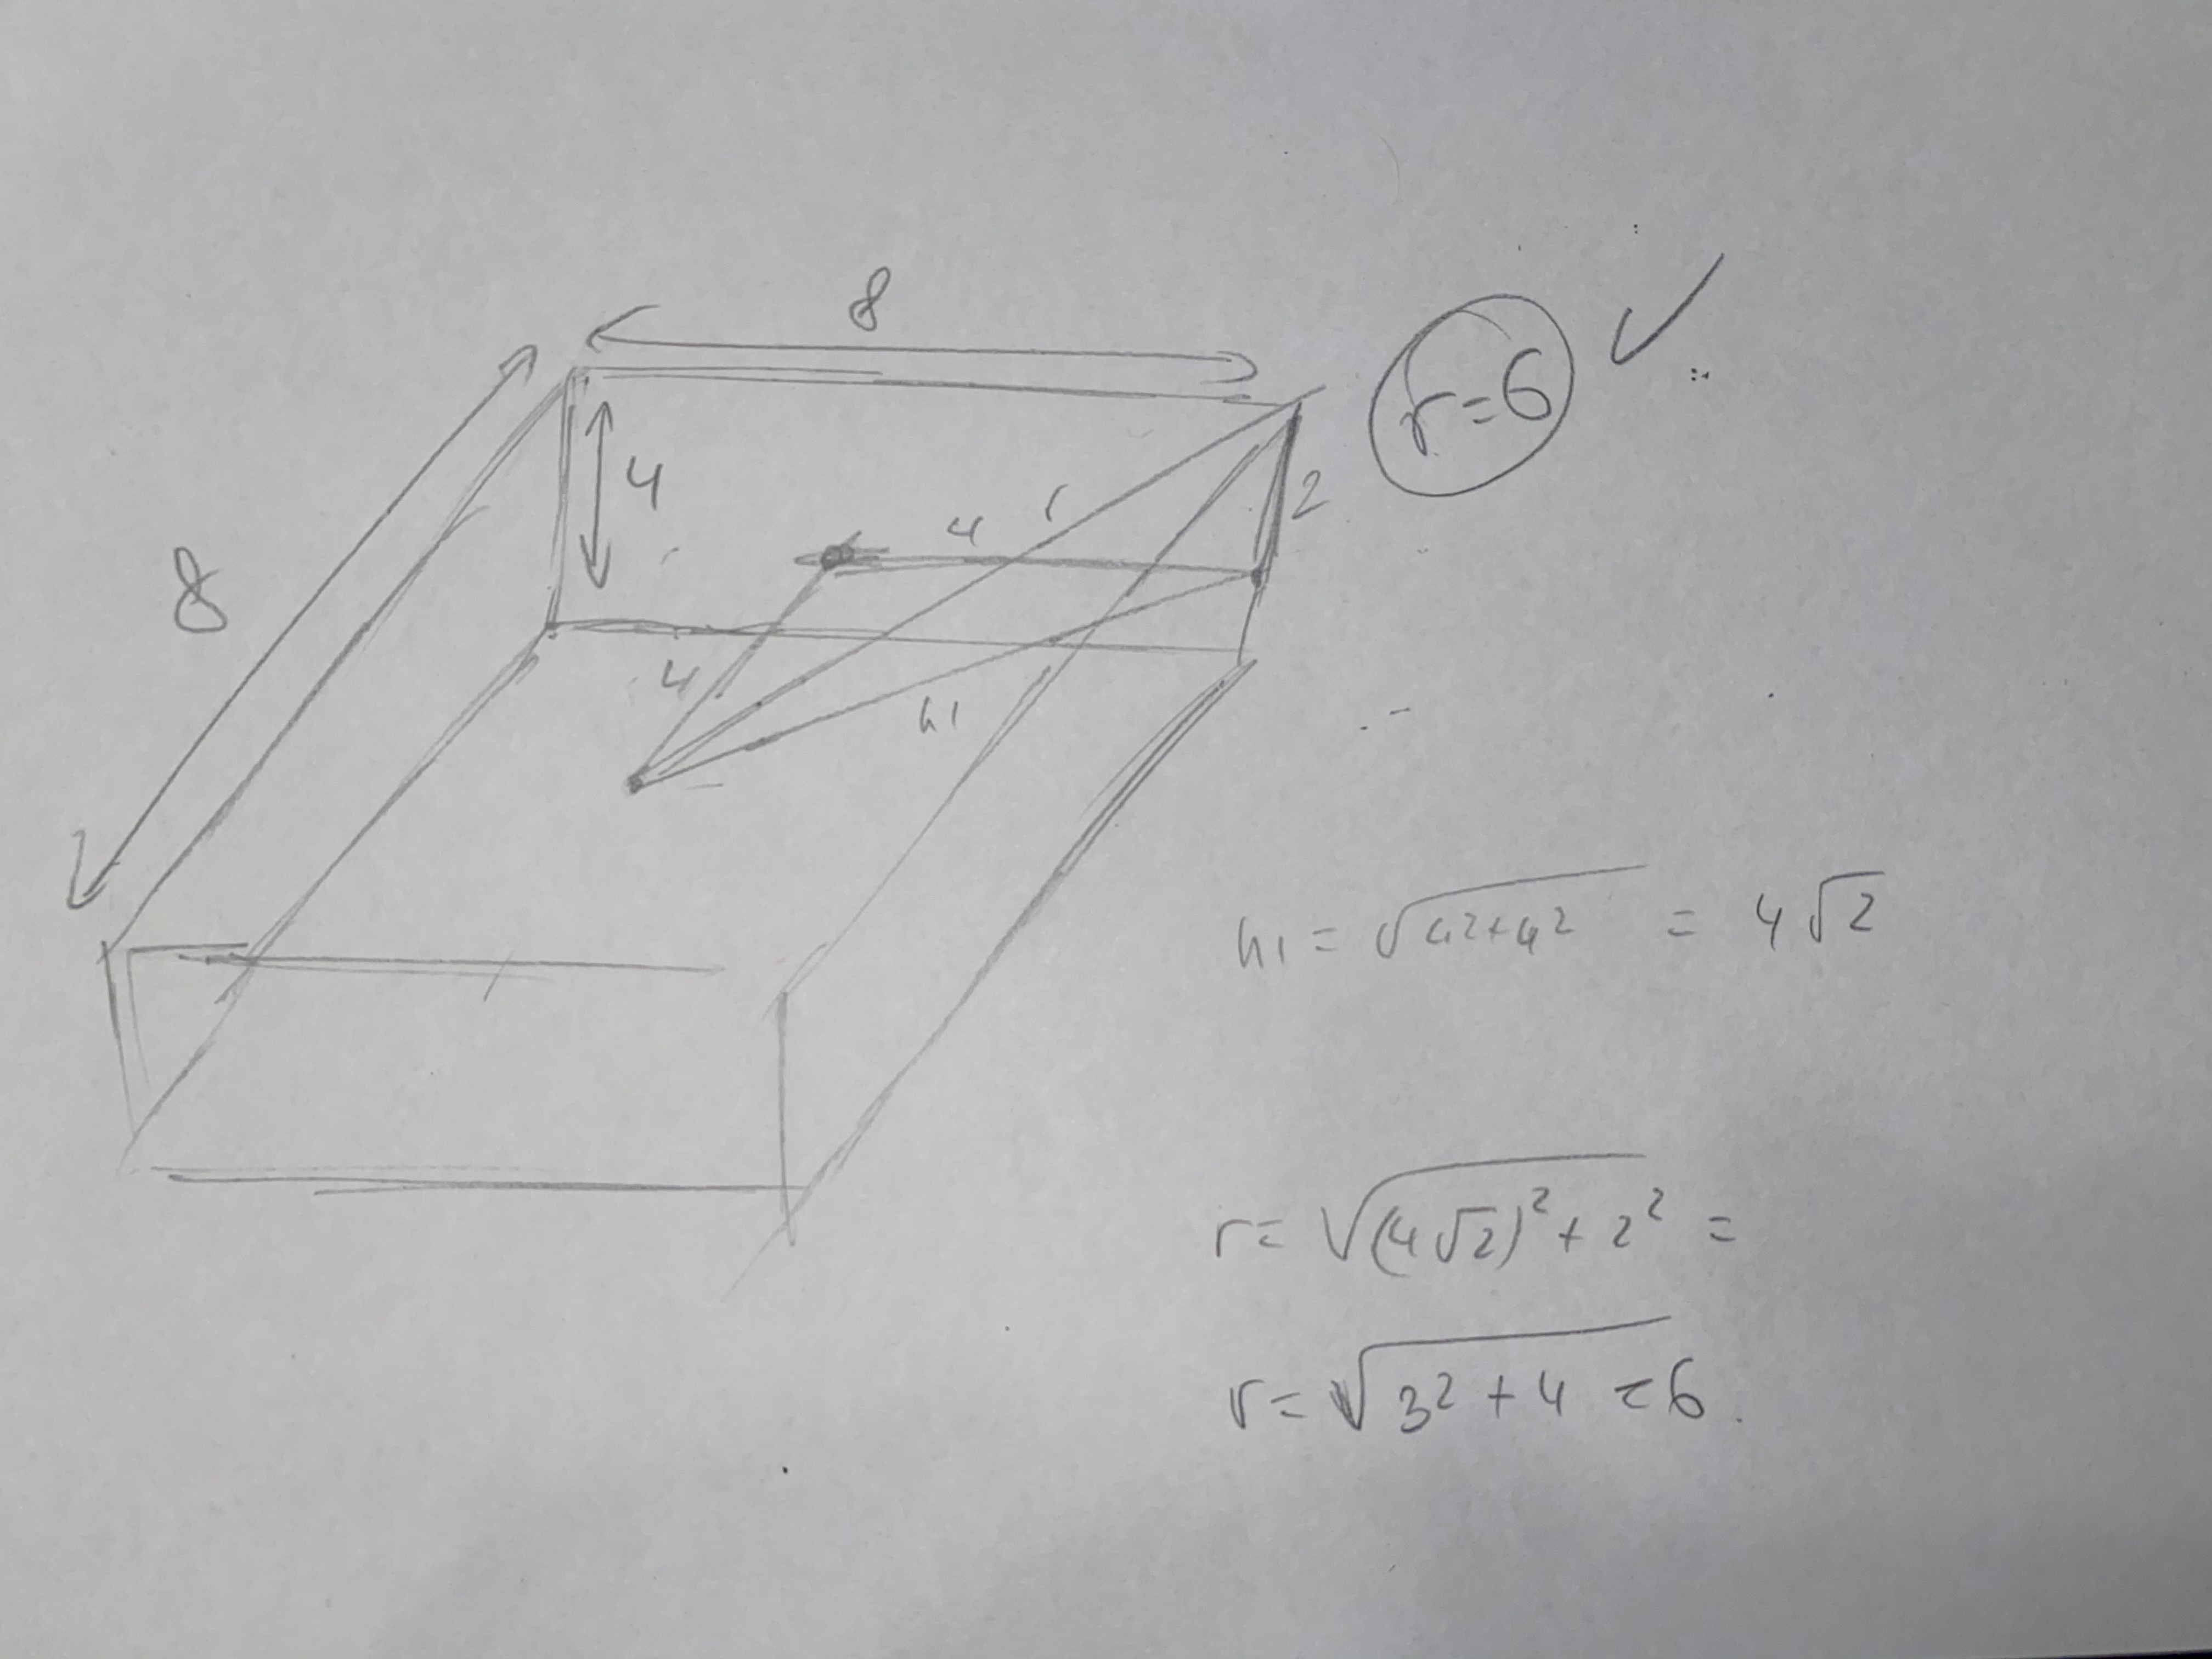 8
r=6 ✓
4
2
4
r
8
4
h1
h1 = √4²+4² = 4√2
r= √(4√2)²+2² =
r= √32+4 =6.